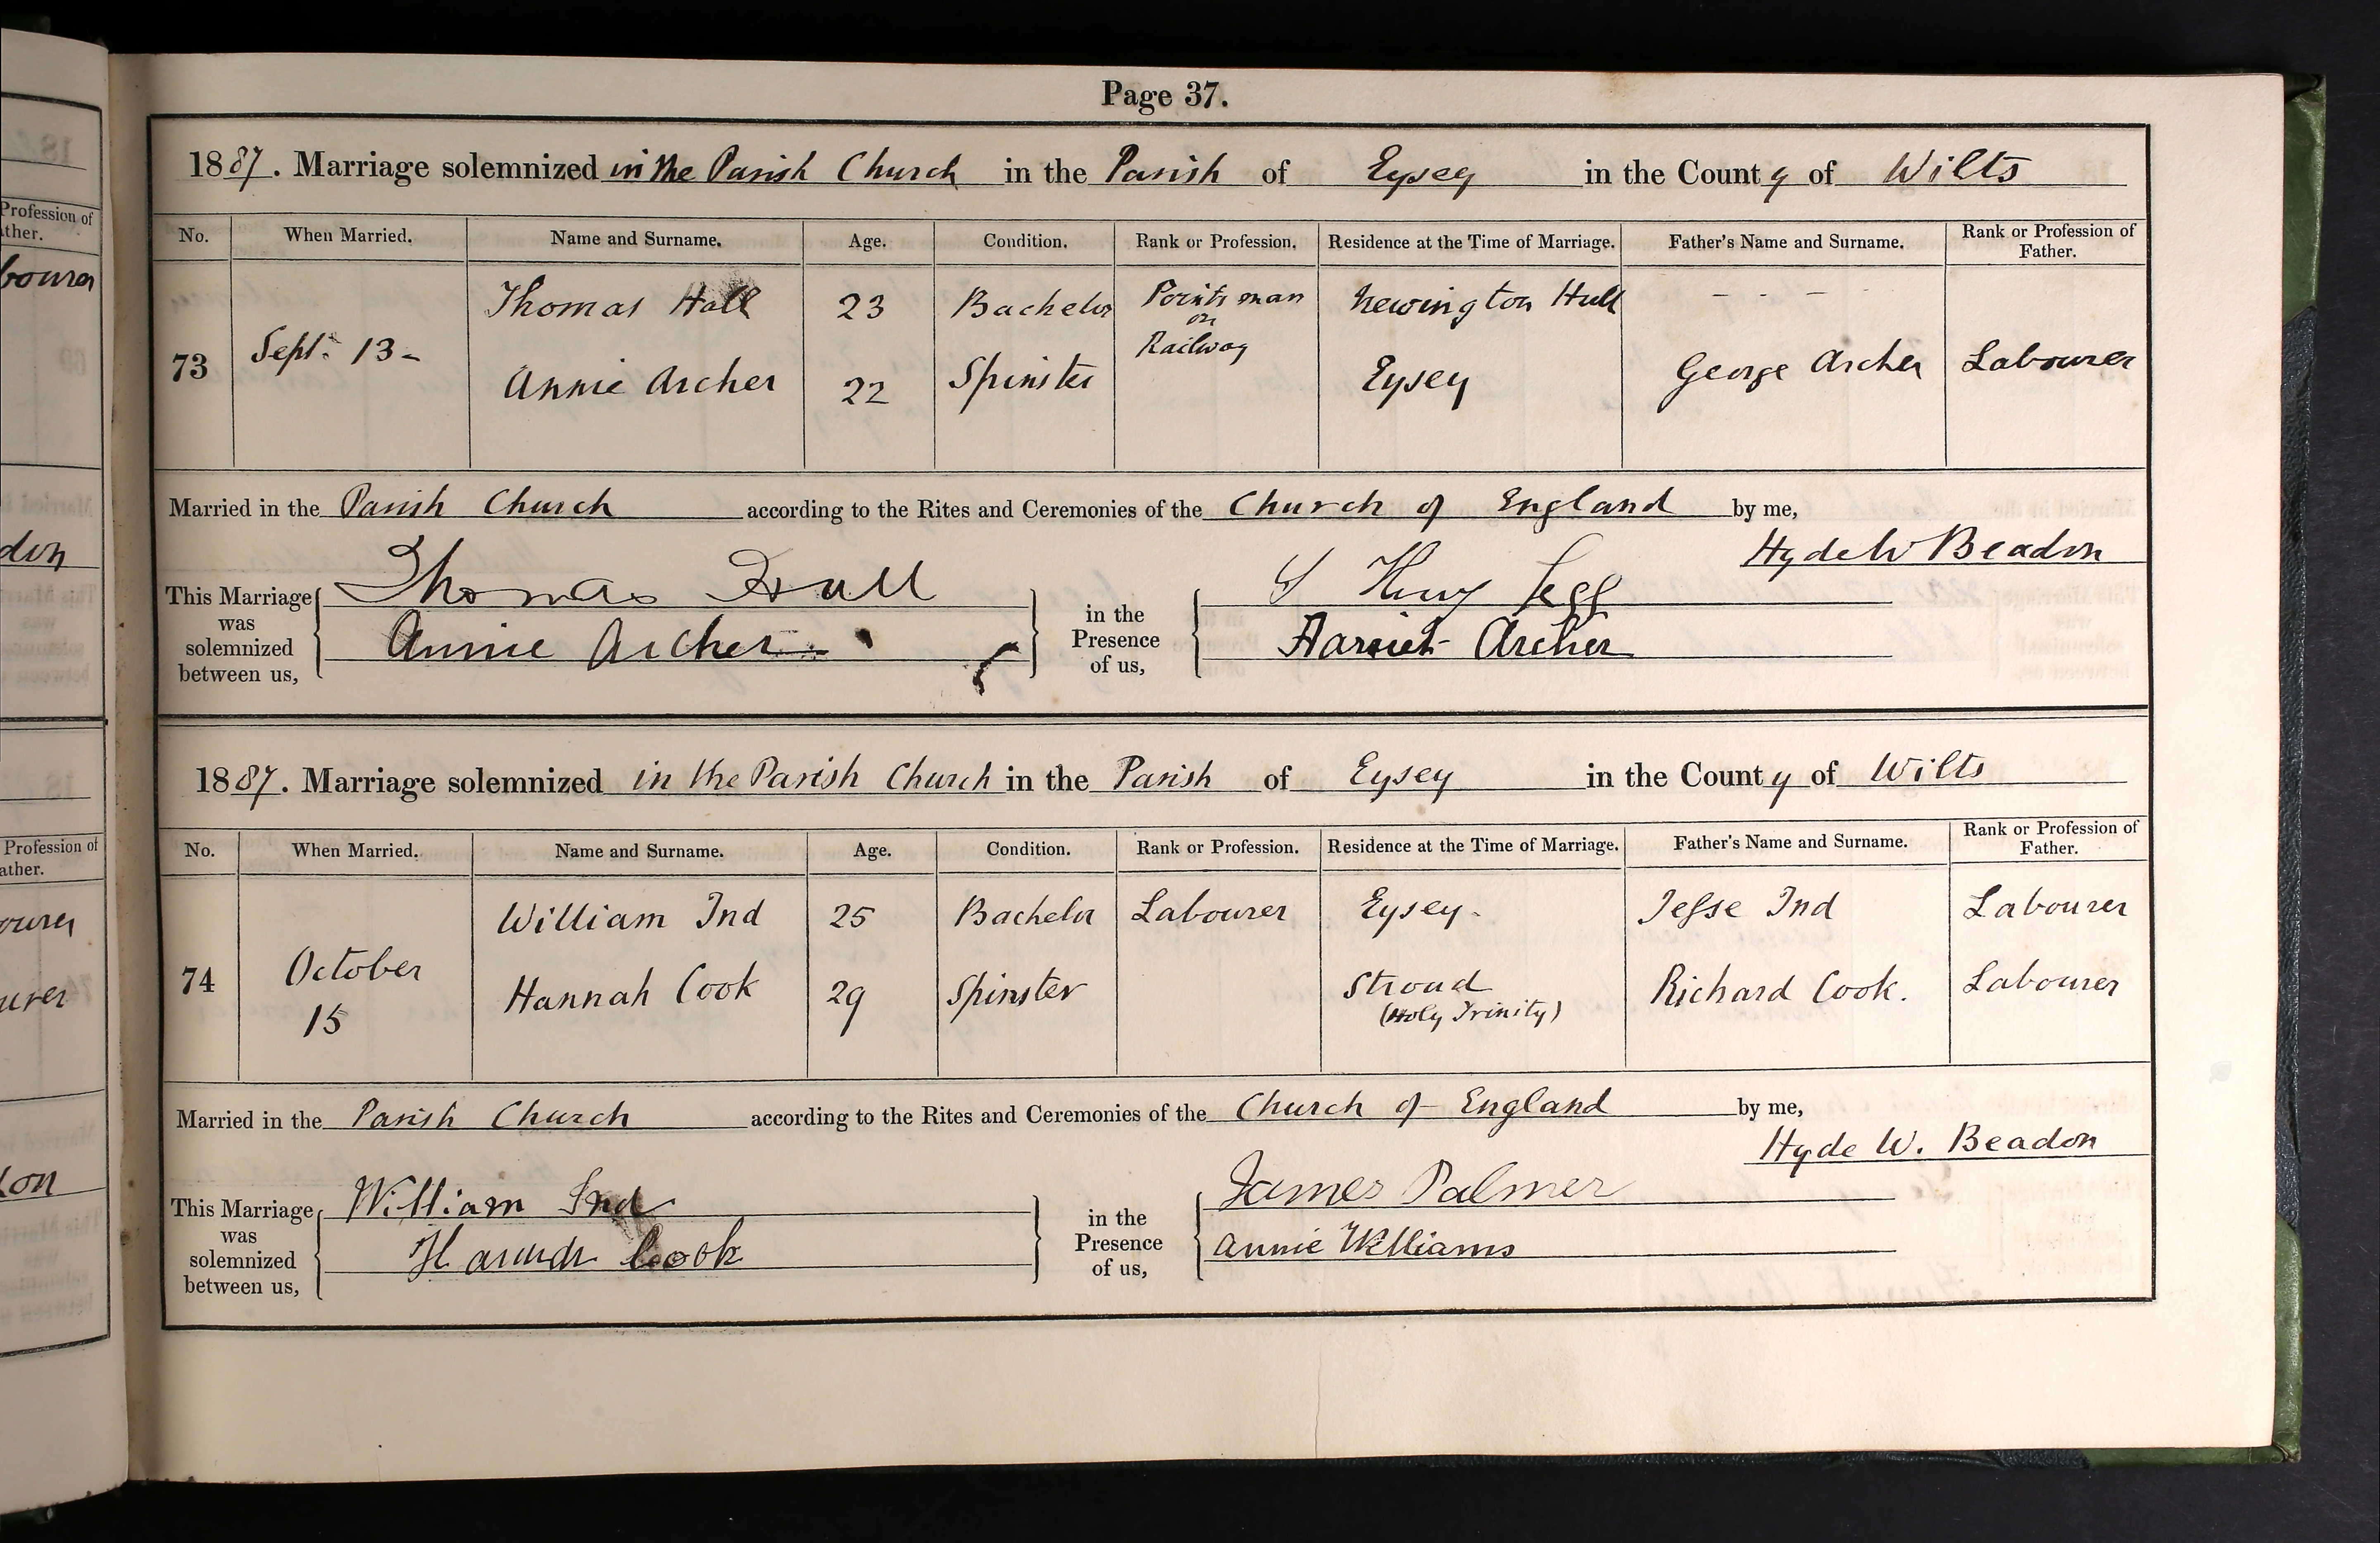 Page 37.
1887. Marriage solemnized in the Parish Church in the Parish of Eysey in the County of Wilts
No. When Married. Name and Surname. Age. Condition. Rank or Profession. Residence at the Time of Marriage. Father's Name and Surname. Rank or Profession of Father.
73 Sept. 13- Thomas Hall 23 Bachelor Points man on Railway Newington Hull - - - -
Annie Archer 22 Spinster Eysey George Archer Labourer
Married in the Parish Church according to the Rites and Ceremonies of the Church of England by me,
Hyde W Beadon
This Marriage was solemnized between us, Thomas Hall in the Presence of us,
Annie Archer Harriet Archer
1887. Marriage solemnized in the Parish Church in the Parish of Eysey in the County of Wilts
No. When Married. Name and Surname. Age. Condition. Rank or Profession. Residence at the Time of Marriage. Father's Name and Surname. Rank or Profession of Father.
74 October 15 William Ind 25 Bachelor Labourer Eysey. Jesse Ind Labourer
Hannah Cook 29 Spinster Stroud (Holy Trinity) Richard Cook. Labourer
Married in the Parish Church according to the Rites and Ceremonies of the Church of England by me,
Hyde W. Beadon
This Marriage was solemnized between us, William Ind in the Presence of us, James Palmer
Hannah Cook Annie Williams